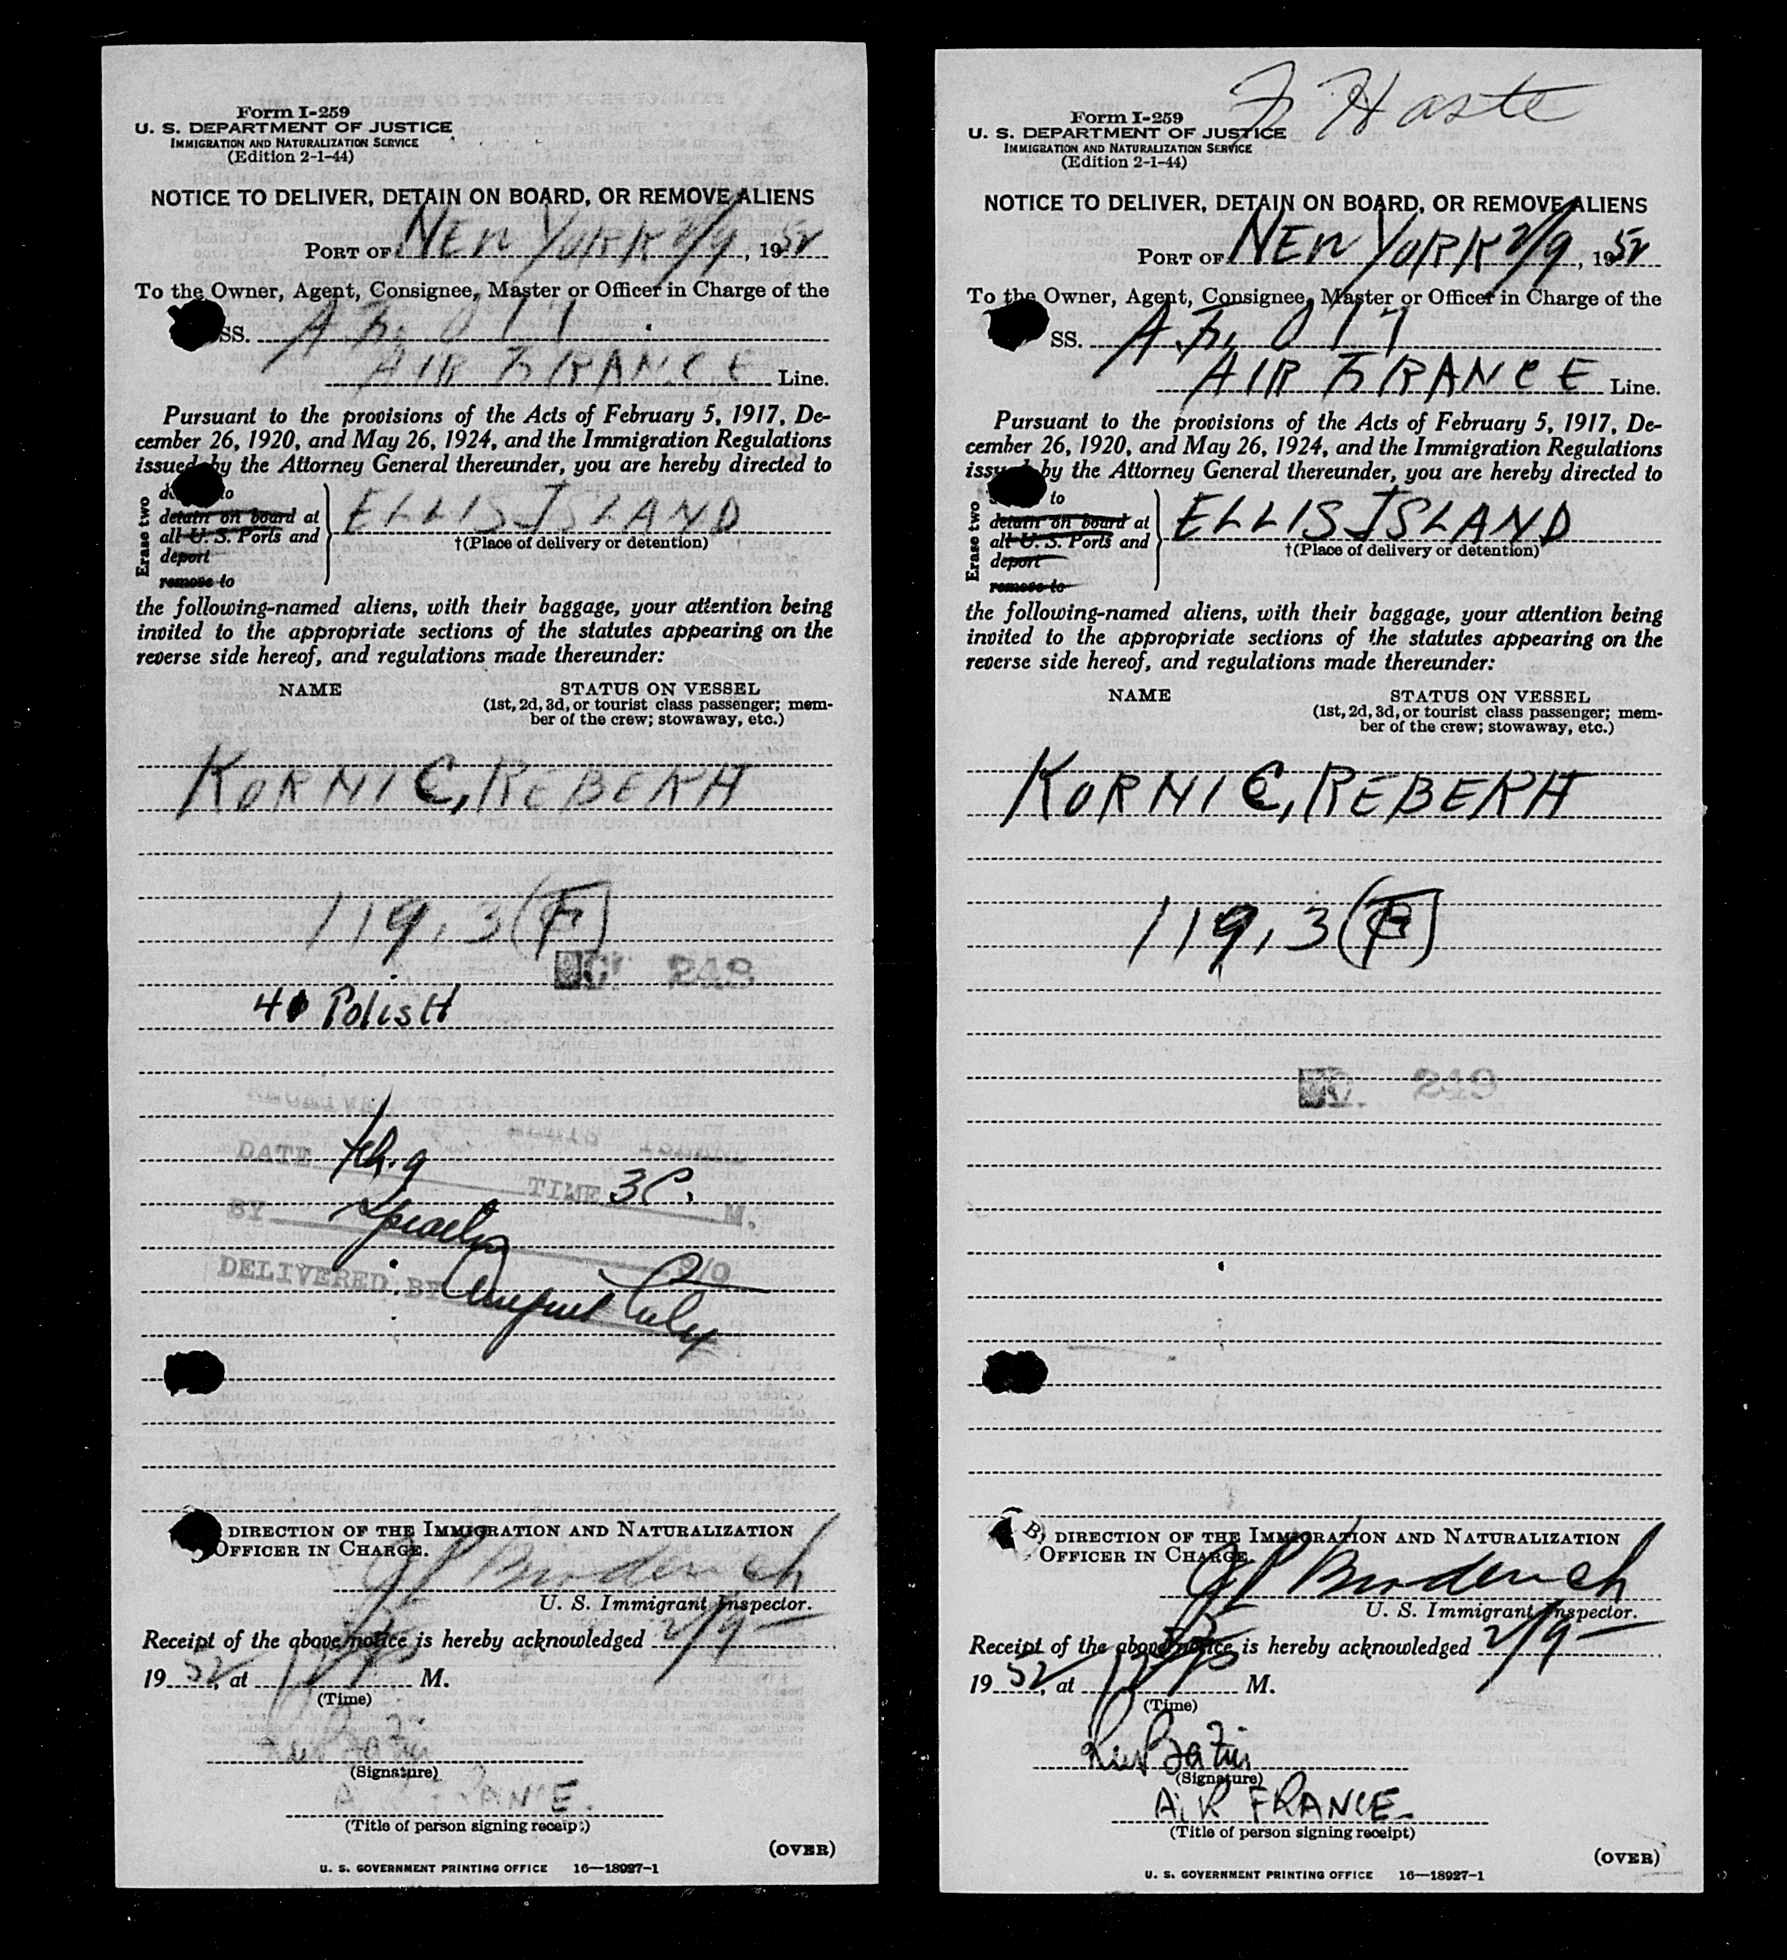 Form I-259
U. S. DEPARTMENT OF JUSTICE
IMMIGRATION AND NATURALIZATION SERVICE
(Edition 2-1-44)
NOTICE TO DELIVER, DETAIN ON BOARD, OR REMOVE ALIENS
PORT OF NEW YORK 2/9, 1952
To the Owner, Agent, Consignee, Master or Officer in Charge of the
SS. A.F. 017
AIR FRANCE Line.
Pursuant to the provisions of the Acts of February 5, 1917, De-
cember 26, 1920, and May 26, 1924, and the Immigration Regulations
issued by the Attorney General thereunder, you are hereby directed to
Erase two
to
detain on board at
all U. S. Ports and
deport
remove to
ELLIS ISLAND
†(Place of delivery or detention)
the following-named aliens, with their baggage, your attention being
invited to the appropriate sections of the statutes appearing on the
reverse side hereof, and regulations made thereunder:
NAME STATUS ON VESSEL
(1st, 2d, 3d, or tourist class passenger; mem-
ber of the crew; stowaway, etc.)
KORNIC, REBEKH
119.3 (F)
249
40 POLISH
ISLAND
DATE Feb. 9 TIME 3 P. M.
BY
DELIVERED BY
DIRECTION OF THE IMMIGRATION AND NATURALIZATION
OFFICER IN CHARGE.
JP Broderich
U. S. Immigrant Inspector.
Receipt of the above notice is hereby acknowledged 2/9
1952, at M.
(Time)
(Signature)
AIR FRANCE.
(Title of person signing receipt)
(OVER)
U. S. GOVERNMENT PRINTING OFFICE 16—18927-1
F. Haste
Form I-259
U. S. DEPARTMENT OF JUSTICE
IMMIGRATION AND NATURALIZATION SERVICE
(Edition 2-1-44)
NOTICE TO DELIVER, DETAIN ON BOARD, OR REMOVE ALIENS
PORT OF NEW YORK 2/9, 1952
To the Owner, Agent, Consignee, Master or Officer in Charge of the
SS. A.F. 017
AIR FRANCE Line.
Pursuant to the provisions of the Acts of February 5, 1917, De-
cember 26, 1920, and May 26, 1924, and the Immigration Regulations
issued by the Attorney General thereunder, you are hereby directed to
Erase two
to
detain on board at
all U. S. Ports and
deport
remove to
ELLIS ISLAND
†(Place of delivery or detention)
the following-named aliens, with their baggage, your attention being
invited to the appropriate sections of the statutes appearing on the
reverse side hereof, and regulations made thereunder:
NAME STATUS ON VESSEL
(1st, 2d, 3d, or tourist class passenger; mem-
ber of the crew; stowaway, etc.)
KORNIC, REBEKH
119.3 (F)
249
By DIRECTION OF THE IMMIGRATION AND NATURALIZATION
OFFICER IN CHARGE.
JP Broderich
U. S. Immigrant Inspector.
Receipt of the above notice is hereby acknowledged 2/9
1952, at M.
(Time)
(Signature)
AIR FRANCE.
(Title of person signing receipt)
(OVER)
U. S. GOVERNMENT PRINTING OFFICE 16—18927-1